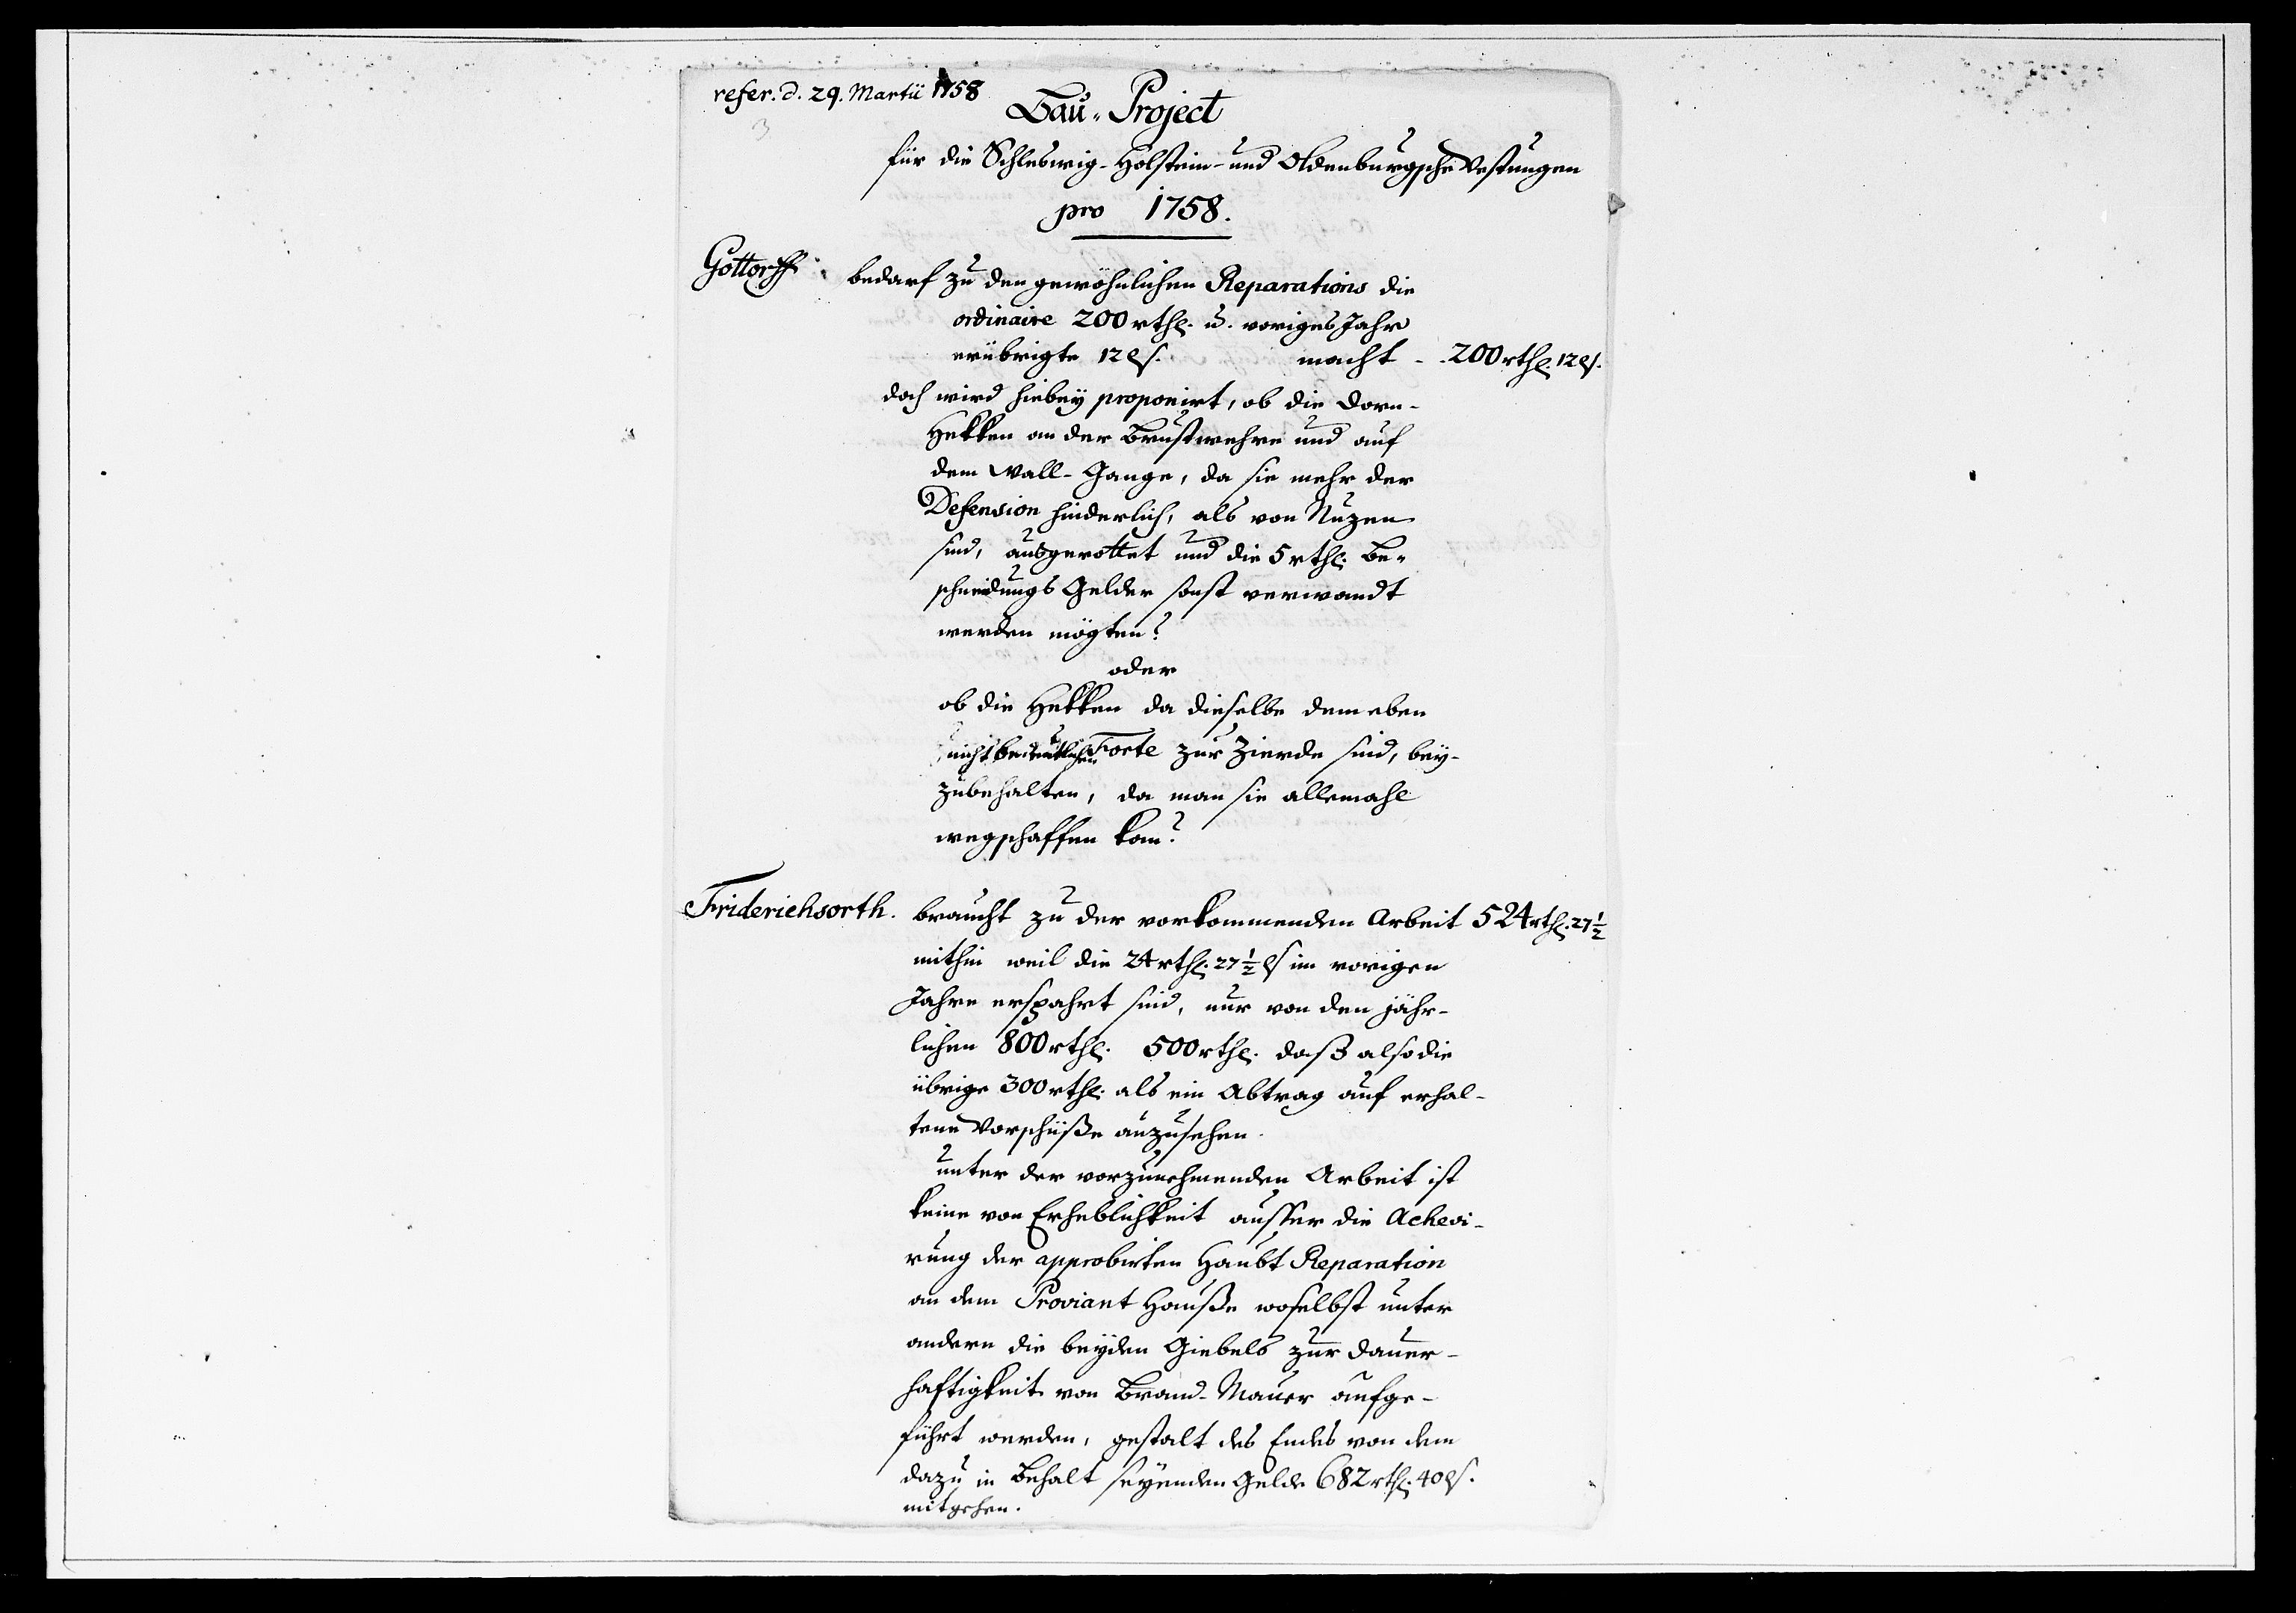 refer. d. 29. Martii 1758
3
Bau-Project
für die Schleswig-Holstein- und Oldenburgsche Vestungen
pro 1758.
Gottorff. bedarf zu den gewöhnlichen Reparations die
ordinaire 200 rthl. u. voriges Jahr
erübrigte 12 ls. macht - 200 rthl. 12 ls.
doch wird hiebey proponirt, ob die Dorn-
Hekken an der Brustwehre und auf
dem Wall-Gange, da sie mehr der
Defension hinderlich, als von Nuzen
sind, ausgerottet und die 5 rthl. Be-
schneidungs Gelder sonst verwandt
werden mögten?
oder
ob die Hekken da dieselbe dem eben
nicht Forte zur Zierde sind, bey-
zubehalten, da man sie allemahl
wegschaffen kan?
Friderichsorth. braucht zu der vorkommenden Arbeit 524 rthl. 27½
mithin weil die 24 rthl. 27½ ls im vorigen
Jahre erspahrt sind, nur von den jähr-
lichen 800 rthl. 500 rthl. daß also die
übrige 300 rthl. als ein Abtrag auf erhal-
tene Vorschüße anzusehen.
unter der vorzunehmenden Arbeit ist
keine von Erheblichkeit ausser die Achevi-
rung der approbirten Haubt Reparation
an dem Proviant Hauße woselbst unter
andern die beyden Giebels zur Dauer-
haftigkeit von Brand-Mauer aufge-
führt werden, gestalt des Endes von dem
dazu in Behalt seyenden Gelde 682 rthl. 40 ls.
mitgehen.